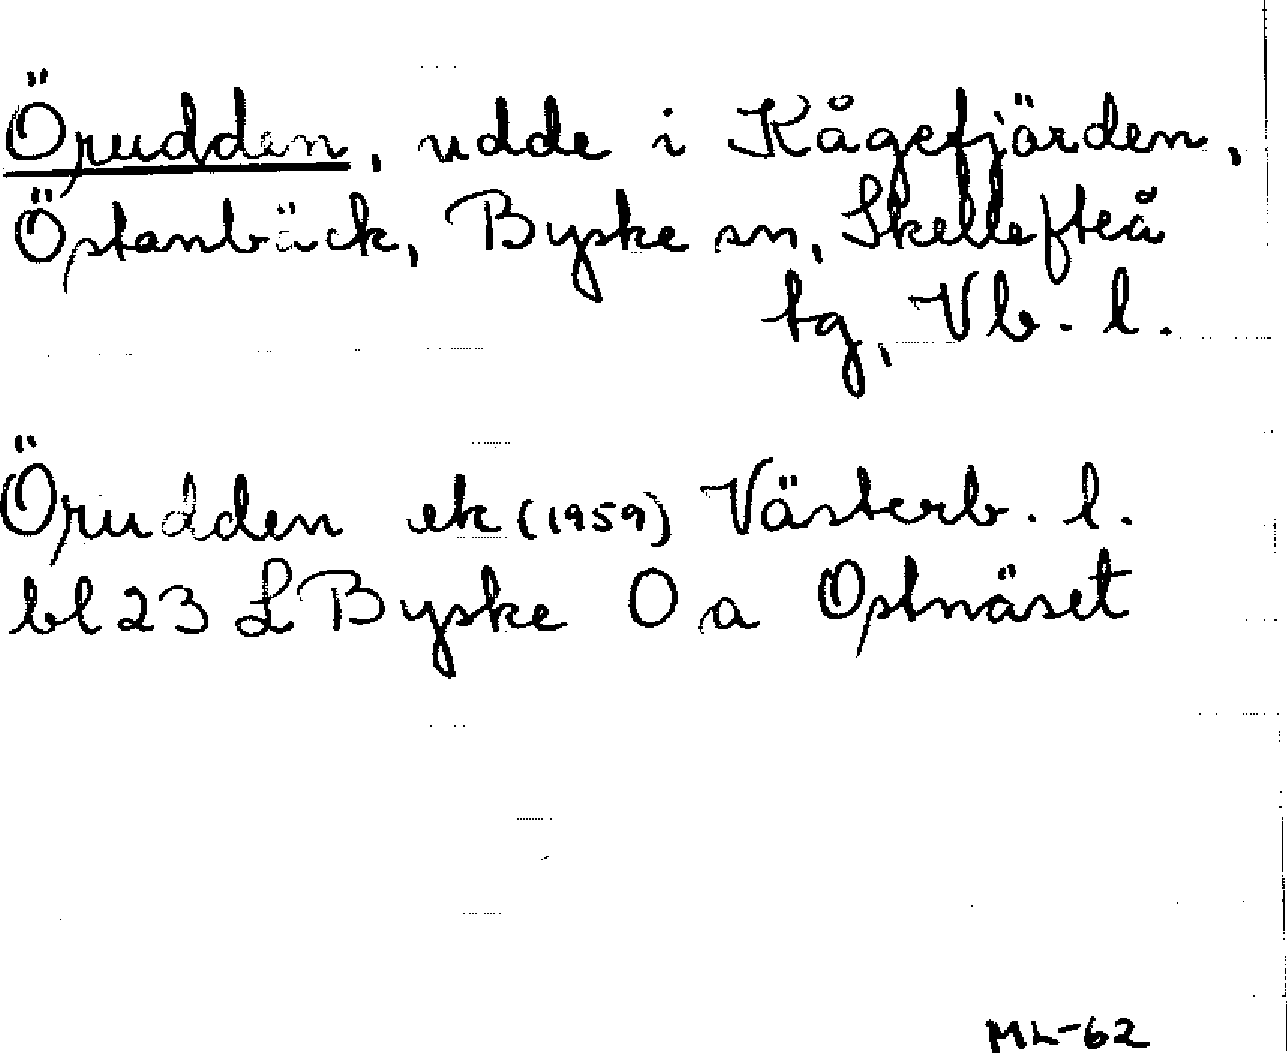 Örudden, udde i Kågefjärden,
Östanbäck, Byske sn, Skellefteå
tg, Vb. l.
Örudden ek (1959) Västerb. l.
bl 23 L Byske O a Ostnäset
ML-62